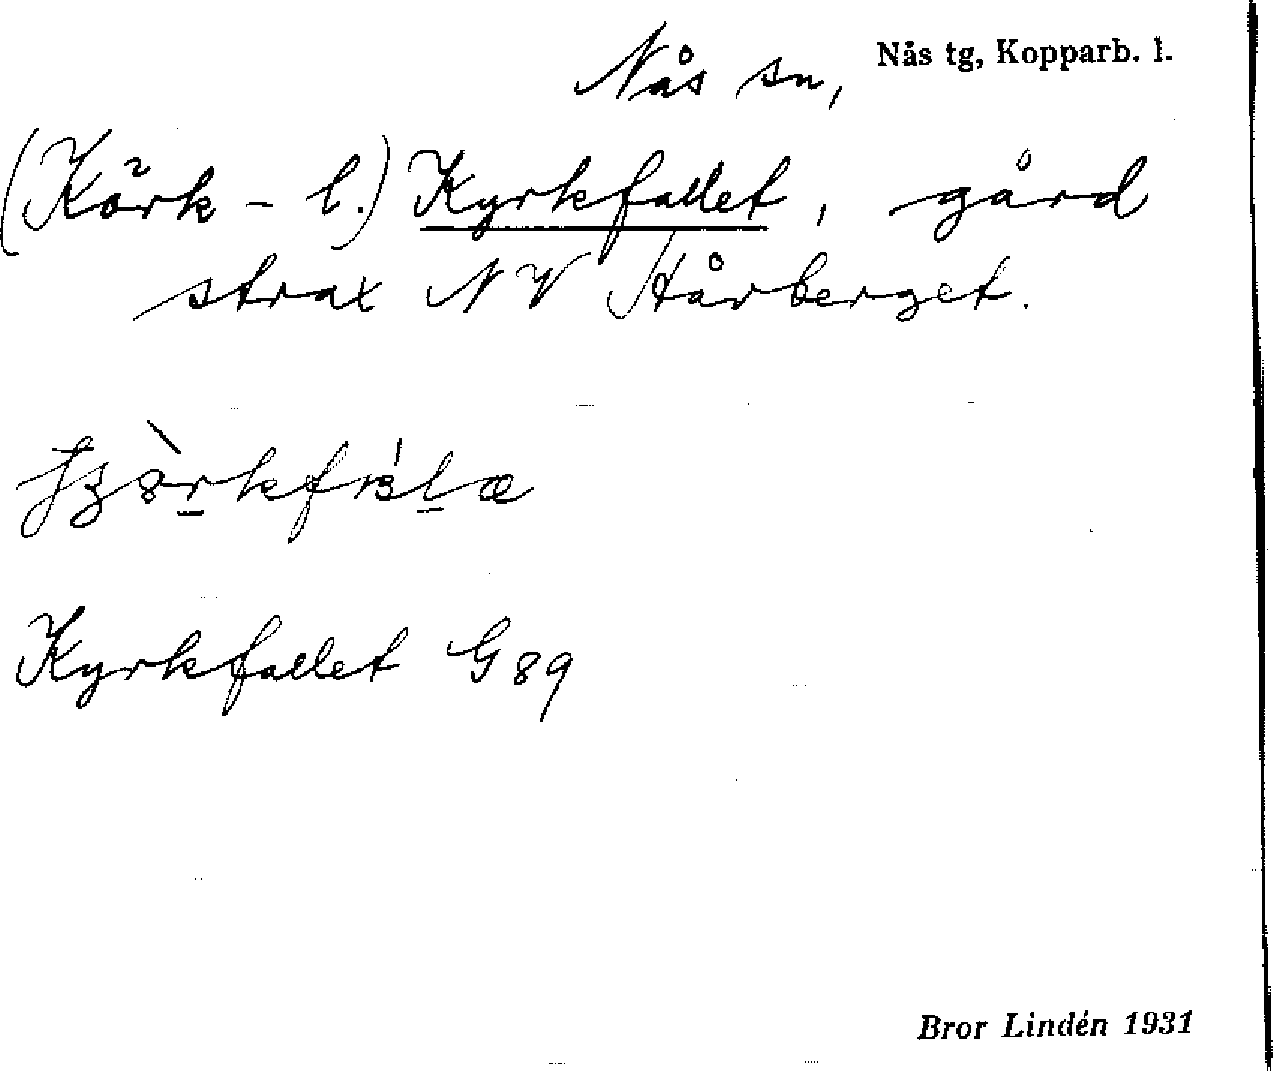 Nås sn,
Nås tg, Kopparb. l.
(Körk - l.) Kyrkfallet, gård
strax NV Hårberget.
Kyrkfallet G 89
Bror Lindén 1931